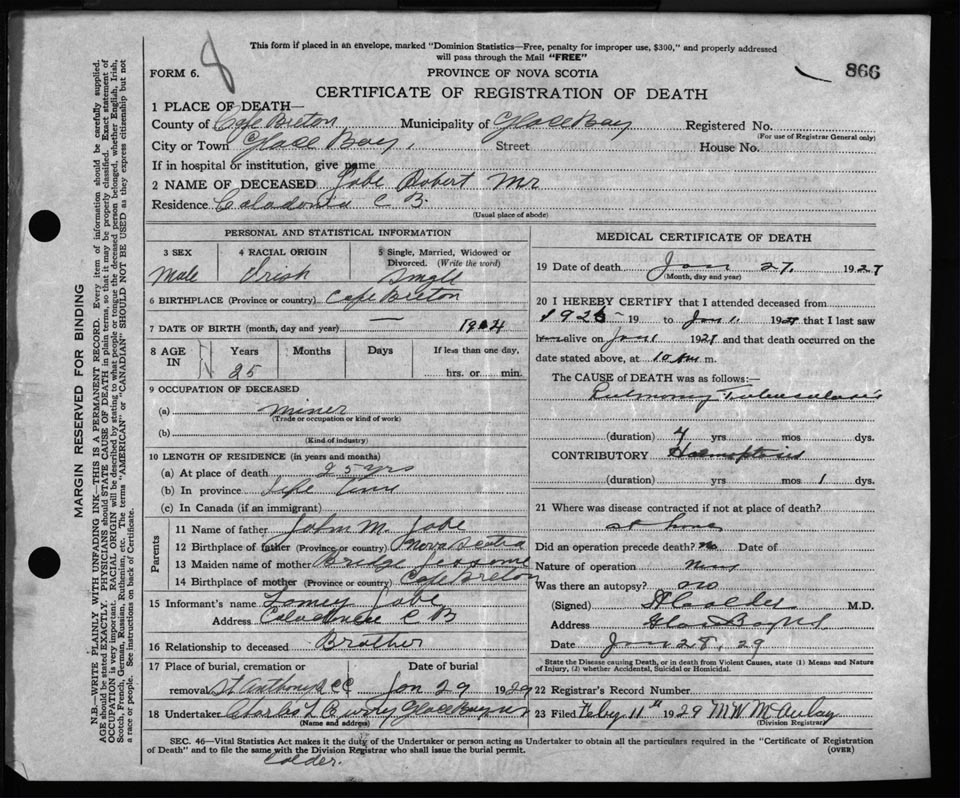 This form if placed in an envelope, marked "Dominion Statistics—Free, penalty for improper use, $300," and properly addressed
will pass through the Mail "FREE"
8
866
FORM 6.
PROVINCE OF NOVA SCOTIA
CERTIFICATE OF REGISTRATION OF DEATH
1 PLACE OF DEATH—
County of Cape Breton Municipality of Glace Bay Registered No.
(For use of Registrar General only)
City or Town Glace Bay, Street House No.
If in hospital or institution, give name
2 NAME OF DECEASED Jobe Robert Mr
Residence Caladonia C B.
(Usual place of abode)
PERSONAL AND STATISTICAL INFORMATION
3 SEX
Male
4 RACIAL ORIGIN
Irish
5 Single, Married, Widowed or
Divorced. (Write the word)
Single
6 BIRTHPLACE (Province or country) Cape Breton
7 DATE OF BIRTH (month, day and year) — 1904
8 AGE
IN
Years Months Days If less than one day,
25
hrs. or min.
9 OCCUPATION OF DECEASED
(a) miner
(Trade or occupation or kind of work)
(b)
(Kind of industry)
10 LENGTH OF RESIDENCE (in years and months)
(a) At place of death 25 yrs
(b) In province Life time
(c) In Canada (if an immigrant)
Parents
11 Name of father John M. Jobe
12 Birthplace of father (Province or country) Nova Scotia
13 Maiden name of mother
14 Birthplace of mother (Province or country) Cape Breton
15 Informant's name Jobe
Address C B
16 Relationship to deceased Brother
17 Place of burial, cremation or Date of burial
removal St Anthonys CC Jan 29 1929
18 Undertaker Charles L Glace Bay
(Name and address)
MEDICAL CERTIFICATE OF DEATH
19 Date of death Jan 27, 1929
(Month, day and year)
20 I HEREBY CERTIFY that I attended deceased from
1925 19 to Jan 1, 1929 that I last saw
h alive on Jan 1 1929 and that death occurred on the
date stated above, at 10 m.
The CAUSE of DEATH was as follows:—
Pulmonary Tuberculosis
(duration) 4 yrs mos dys.
CONTRIBUTORY Haemoptysis
(duration) yrs mos 1 dys.
21 Where was disease contracted if not at place of death?
at home
Did an operation precede death? No Date of
Nature of operation None
Was there an autopsy? no
(Signed) Calder M.D.
Address Glace Bay NS
Date Jan 28, 29
State the Disease causing Death, or in death from Violent Causes, state (1) Means and Nature
of Injury, (2) whether Accidental, Suicidal or Homicidal.
22 Registrar's Record Number
23 Filed Feby 11th 1929 M W McAulay
(Division Registrar)
SEC. 46—Vital Statistics Act makes it the duty of the Undertaker or person acting as Undertaker to obtain all the particulars required in the "Certificate of Registration
of Death" and to file the same with the Division Registrar who shall issue the burial permit.
(OVER)
Calder.
MARGIN RESERVED FOR BINDING
N.B.—WRITE PLAINLY WITH UNFADING INK—THIS IS A PERMANENT RECORD. Every item of information should be carefully supplied.
AGE should be stated EXACTLY. PHYSICIANS should STATE CAUSE OF DEATH in plain terms, so that it may be properly classified. Exact statement of
OCCUPATION is very important. RACIAL ORIGIN will be described by stating to what people or tongue the deceased person belonged, whether English, Irish,
Scotch, French, German, Russian, Ruthenian, etc. The terms "AMERICAN" or "CANADIAN" SHOULD NOT BE USED as they express citizenship but not
a race or people. See instructions on back of Certificate.